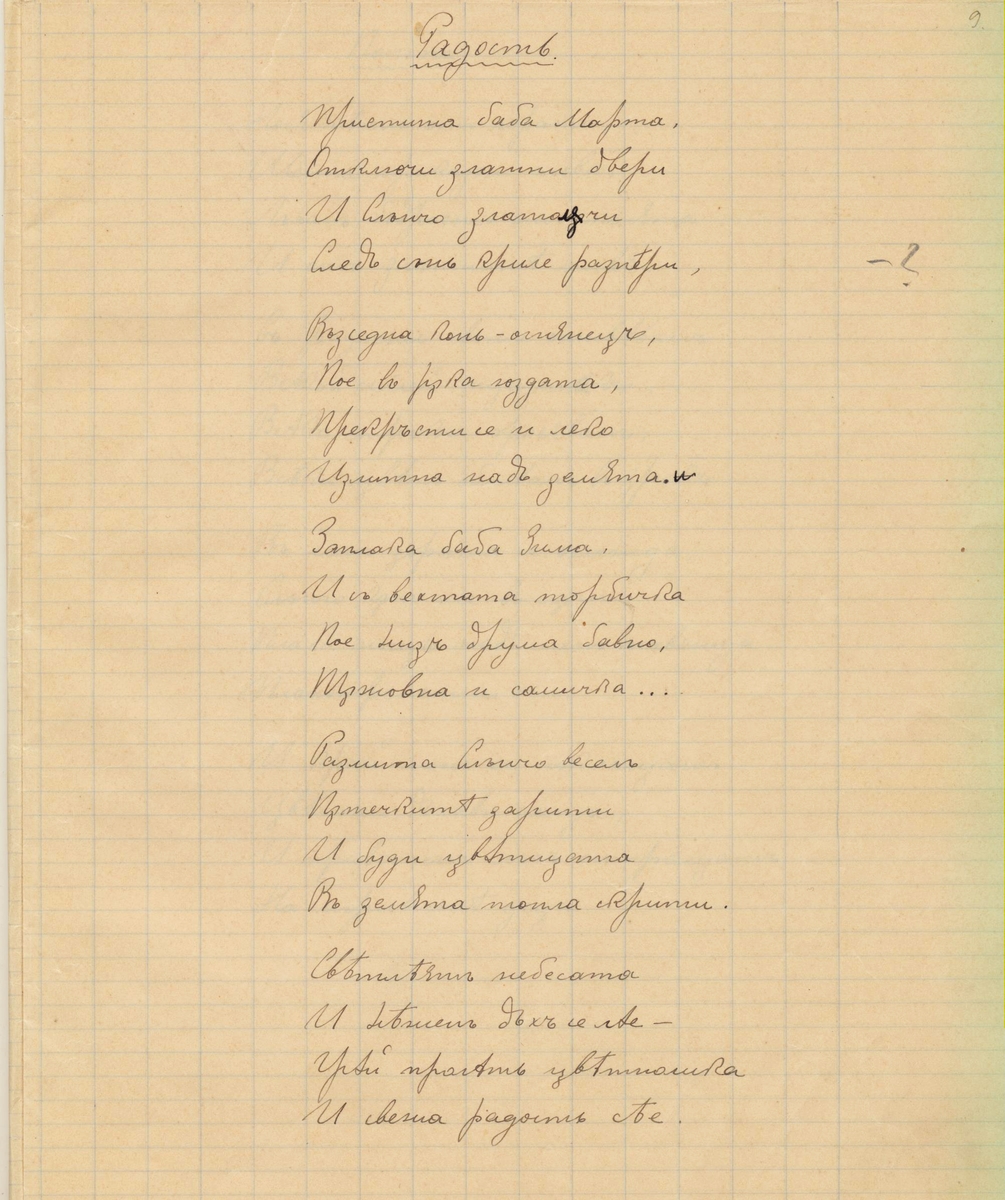 9.
Радость.
Пристига баба Марта,
Отключи златни двери
И Слънчо златокъдри
Следъ сънь криле разпѣри,
– ?
Възседна конь-огнянецъ,
Пое въ рѫка юздата,
Прекръсти се и леко
Излитна надъ земята.
Заплака баба Зима,
И съ вехтата торбичка
Пое низъ друма бавно,
Тѫжовна и самичка...
Размита Слънчо веселъ
Пѫтечкитѣ зарити
И буди цвѣтицата
Въ земята топла скрити.
Свѣтлѣятъ небесата
И нѣженъ дъхъ се лѣе –
Грѣй пролѣть цвѣтношка
И свежа радость сѣе.